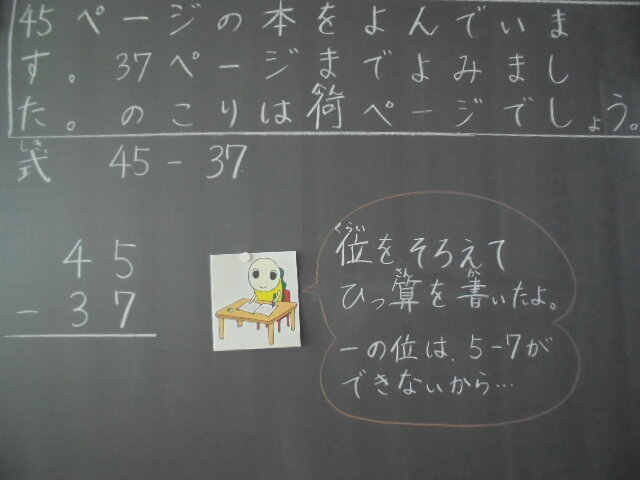 45ページの本をよんでいま
す。37ページまでよみまし
た。のこりは何ページでしょう。
しき
式 45-37
45
-37
くらい
位をそろえて
さん か
ひっ算を書いたよ。
一の位は、5-7が
できないから…